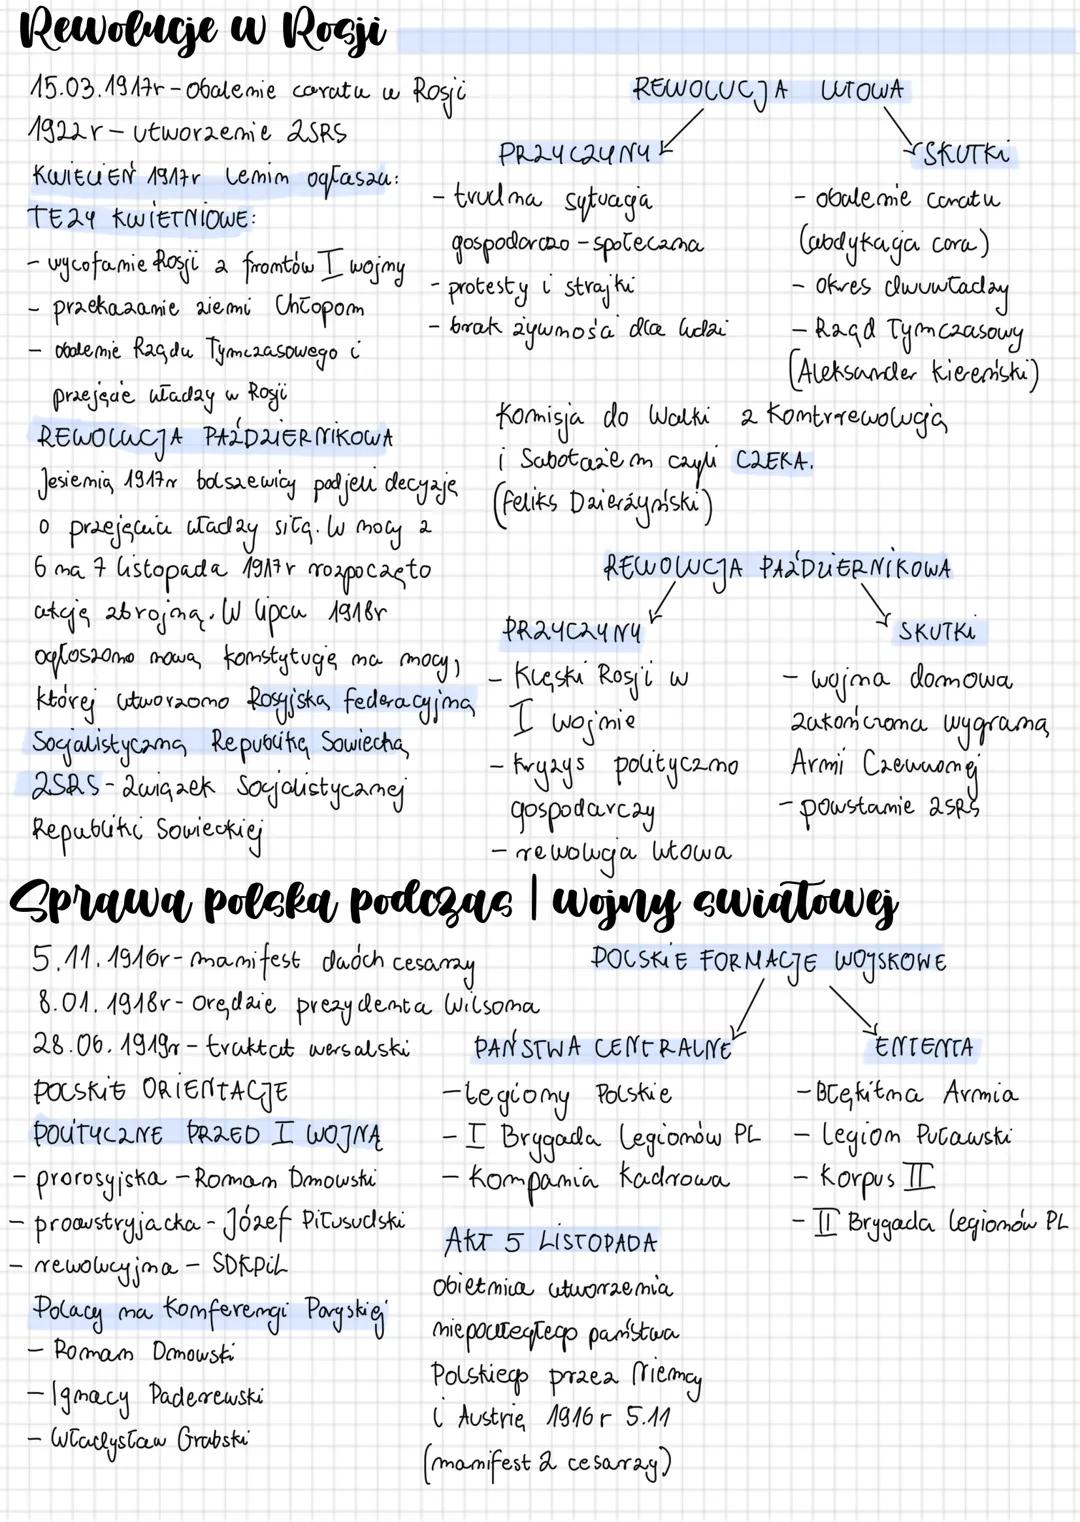 Rewolucje w Rosji
15.03.1917r - obalenie caratu w Rosji
1922r - utworzenie ZSRS
KWIECIEŃ 1917r Lenin ogłasza:
TEZY KWIETNIOWE:
- wycofanie Rosji z frontów I wojny
- przekazanie ziemi Chłopom
- obalenie Rządu Tymczasowego i
przejęcie władzy w Rosji
REWOLUCJA PAŹDZIERNIKOWA
Jesienią 1917r bolszewicy podjeli decyzję
o przejęciu władzy siłą. W nocy z
6 na 7 listopada 1917r rozpoczęto
akcję zbrojną. W lipcu 1918r
ogłoszono nową konstytucję na mocy,
której utworzono Rosyjską federacyjną
Socjalistyczną Republiką Sowiecką
ZSRS - Związek Socjalistycznej
Republiki Sowieckiej
REWOLUCJA LUTOWA
PRZYCZYNY
- trudna sytuacja
gospodarczo - społeczna
- protesty i strajki
- brak żywności dla ludzi
SKUTKI
- obalenie caratu
(abdykacja cara)
- okres dwuwładzy
- Rząd Tymczasowy
(Aleksander Kiereński)
Komisja do Walki z Kontrrewolucją
i Sabotażem czyli CZEKA.
(Feliks Dzierżyński)
REWOLUCJA PAŹDZIERNIKOWA
PRZYCZYNY
- Klęski Rosji w
I wojnie
- Kryzys polityczno
gospodarczy
- rewolucja lutowa
SKUTKI
- wojna domowa
zakończona wygraną
Armi Czerwonej
- powstanie ZSRS
Sprawa polska podczas I wojny światowej
5.11.1916r - manifest dwóch cesarzy
8.01.1918r - Orędzie prezydenta Wilsona
28.06.1919r - traktat wersalski
POLSKIE ORIENTACJE
POLITYCZNE PRZED I WOJNĄ
- prorosyjska - Roman Dmowski
- proaustryjacka - Józef Piłsudski
- rewolucyjna - SDKPiL
Polacy na Konferencji Paryskiej
- Roman Dmowski
- Ignacy Paderewski
- Władysław Grabski
POLSKIE FORMACJE WOJSKOWE
PAŃSTWA CENTRALNE
- Legiony Polskie
- I Brygada Legionów PL
- Kompania Kadrowa
ENTENTA
- Błękitna Armia
- Legion Puławski
- Korpus II
- II Brygada legionów PL
AKT 5 LISTOPADA
Obietnica utworzenia
niepodległego państwa
Polskiego przez Niemcy
i Austrię 1916r 5.11
(manifest 2 cesarzy)